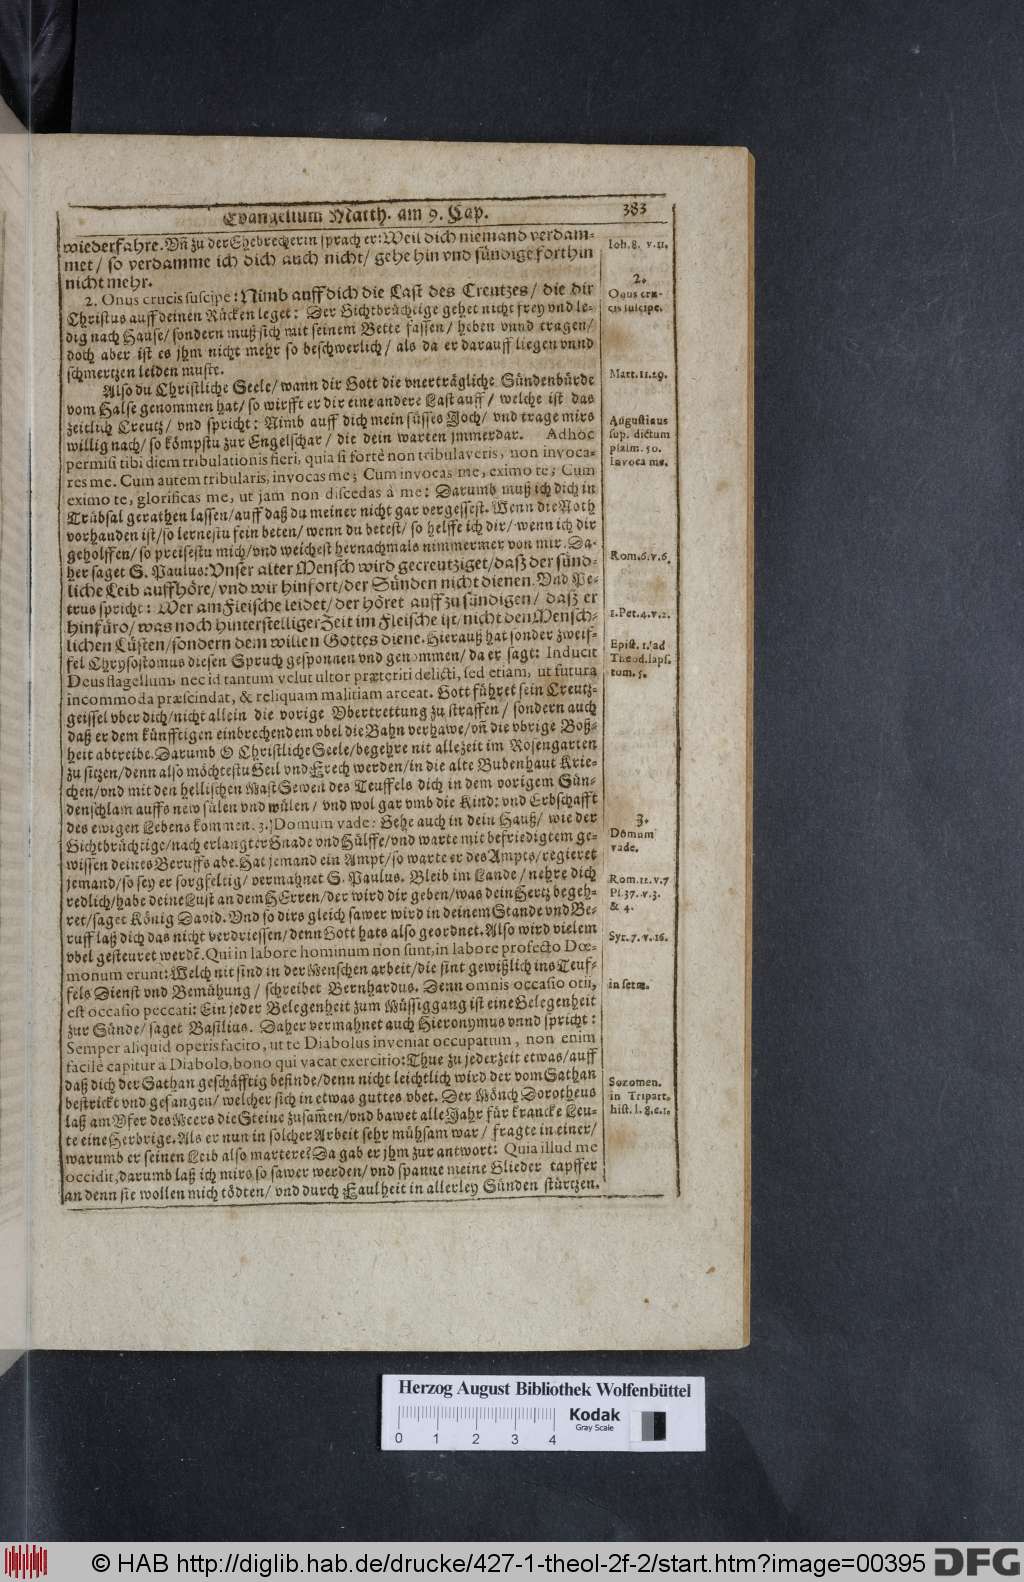 Evangelium Matth. am 9. Cap. 383
wiederfahre. Vñ zu der Ehebrecherin sprach er: Weil dich niemand verdam-
met/ so verdamme ich dich auch nicht/ gehe hin vnd sündige forthin
nicht mehr.
2. Onus crucis suscipe: Nimb auff dich die Last des Creutzes/ die dir
Christus auff deinen Rücken leget: Der Gichtbrüchtige gehet nicht frey vnd le-
dig nach Hause/ sondern muß sich mit seinem Bette fassen/ heben vnnd tragen/
doch aber ist es jhm nicht mehr so beschwerlich/ als da er darauff liegen vnnd
schmertzen leiden muste.
Also du Christliche Seele/ wann dir Gott die vnerträgliche Sündenbürde
vom Halse genommen hat/ so wirfft er dir eine andere Last auff/ welche ist das
zeitlich Creutz/ vnd spricht: Nimb auff dich mein süsses Joch/ vnd trage mirs
willig nach/ so kömpstu zur Engelschar/ die dein warten jmmerdar. Adhoc
permisi tibi diem tribulationis fieri, quia si fortè non tribulaveris, non invoca-
res me. Cum autem tribularis, invocas me; Cum invocas me, eximo te; Cum
eximo te, glorificas me, ut jam non discedas à me: Darumb muß ich dich in
Trübsal gerathen lassen/ auff daß du meiner nicht gar vergessest. Wenn die Noth
vorhanden ist/ so lernestu fein beten/ wenn du betest/ so helffe ich dir/ wenn ich dir
geholffen/ so preisestu mich/ vnd weichest hernachmals nimmermer von mir. Da-
her saget S. Paulus: Vnser alter Mensch wird gecreutziget/ daß der sünd-
liche Leib auffhöre/ vnd wir hinfort/ der Sünden nicht dienen. Vnd Pe-
trus spricht: Wer am Fleische leidet/ der höret auff zu sündigen/ daß er
hinfüro/ was noch hinterstelliger Zeit im Fleische ist/ nicht den Mensch-
lichen Lüsten/ sondern dem willen Gottes diene. Hierauß hat sonder zweif-
fel Chrysostomus diesen Spruch gesponnen vnd genommen/ da er sagt: Inducit
Deus flagellum, nec id tantum velut ultor præteriti delicti, sed etiam, ut futura
incommoda præscindat, & reliquam malitiam arceat. Gott führet sein Creutz-
geissel vber dich/ nicht allein die vorige Vbertrettung zu straffen/ sondern auch
daß er dem künfftigen einbrechendem vbel die Bahn verhawe/ vñ die vbrige Boß-
heit abtreibe. Darumb O Christliche Seele/ begehre nit allezeit im Rosengarten
zu sitzen/ denn also möchtestu Geil vnd Frech werden/ in die alte Bubenhaut Krie-
chen/ vnd mit den hellischen MastSewen des Teuffels dich in dem vorigem Sün-
denschlam auffs new sülen vnd wülen/ vnd wol gar vmb die Kind: vnd Erbschafft
des ewigen Lebens kommen. 3.) Domum vade: Gehe auch in dein Hauß/ wie der
Gichtbrüchtige/ nach erlangter Gnade vnd Hülffe/ vnd warte mit befriedigtem ge-
wissen deines Beruffs abe. Hat jemand ein Ampt/ so warte er des Ampts/ regieret
jemand/ so sey er sorgfeltig/ vermahnet S. Paulus. Bleib im Lande/ nehre dich
redlich/ habe deine Lust an dem HErren/ der wird dir geben/ was dein Hertz begeh-
ret/ saget König David. Vnd so dirs gleich sawer wird in deinem Stande vnd Be-
ruff laß dich das nicht verdriessen/ denn Gott hats also geordnet. Also wird vielem
vbel gesteuret werdẽ. Qui in labore hominum non sunt, in labore profecto Dœ-
monum erunt: Welch nit sind in der Menschen arbeit/ die sint gewißlich ins Teuf-
fels Dienst vnd Bemühung/ schreibet Bernhardus. Denn omnis occasio otii,
est occasio peccati: Ein jeder Belegenheit zum Müssiggang ist eine Gelegenheit
zur Sünde/ saget Basilius. Daher vermahnet auch Hieronymus vnnd spricht:
Semper aliquid operis facito, ut te Diabolus inveniat occupatum, non enim
facilè capitur a Diabolo, bono qui vacat exercitio: Thue zu jederzeit etwas/ auff
daß dich der Sathan geschäfftig befinde/ denn nicht leichtlich wird der vom Sathan
bestrickt vnd gefangen/ welcher sich in etwas guttes vbet. Der Mönch Dorotheus
laß am Vfer des Meers die Steine zusam̃en/ vnd bawet alle Jahr für krancke Leu-
te eine Herbrige. Als er nun in solcher Arbeit sehr mühsam war/ fragte in einer/
warumb er seinen Leib also martere? Da gab er jhm zur antwort: Quia illud me
occidit, darumb laß ich mirs so sawer werden/ vnd spanne meine Glieder tapffer
an denn sie wollen mich tödten/ vnd durch Faulheit in allerley Sünden stürtzen.
Ioh. 8. v. 11.
2.
Onus cru-
cis suscipe.
Matt. 11. 29.
Augustinus
sup. dictum
psalm. 50.
Invoca me.
Rom. 6. v. 6.
1. Pet. 4. v. 2.
Epist. 1. ad
Theod. laps.
tom. 5.
3.
Domum
vade.
Rom. 12. v. 7
Ps. 37. v. 3.
& 4.
Syr. 7. v. 16.
in serm.
Sozomen.
in Tripart.
hist. l. 8. c. 1.
Herzog August Bibliothek Wolfenbüttel
0 1 2 3 4
Kodak
Gray Scale
© HAB http://diglib.hab.de/drucke/427-1-theol-2f-2/start.htm?image=00395 DFG